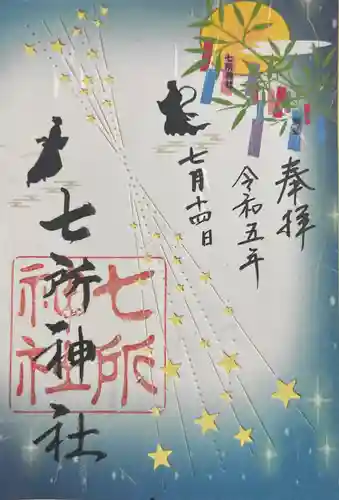 奉拝
令和五年
七月十四日
七所神社
七所
神社
七所神社